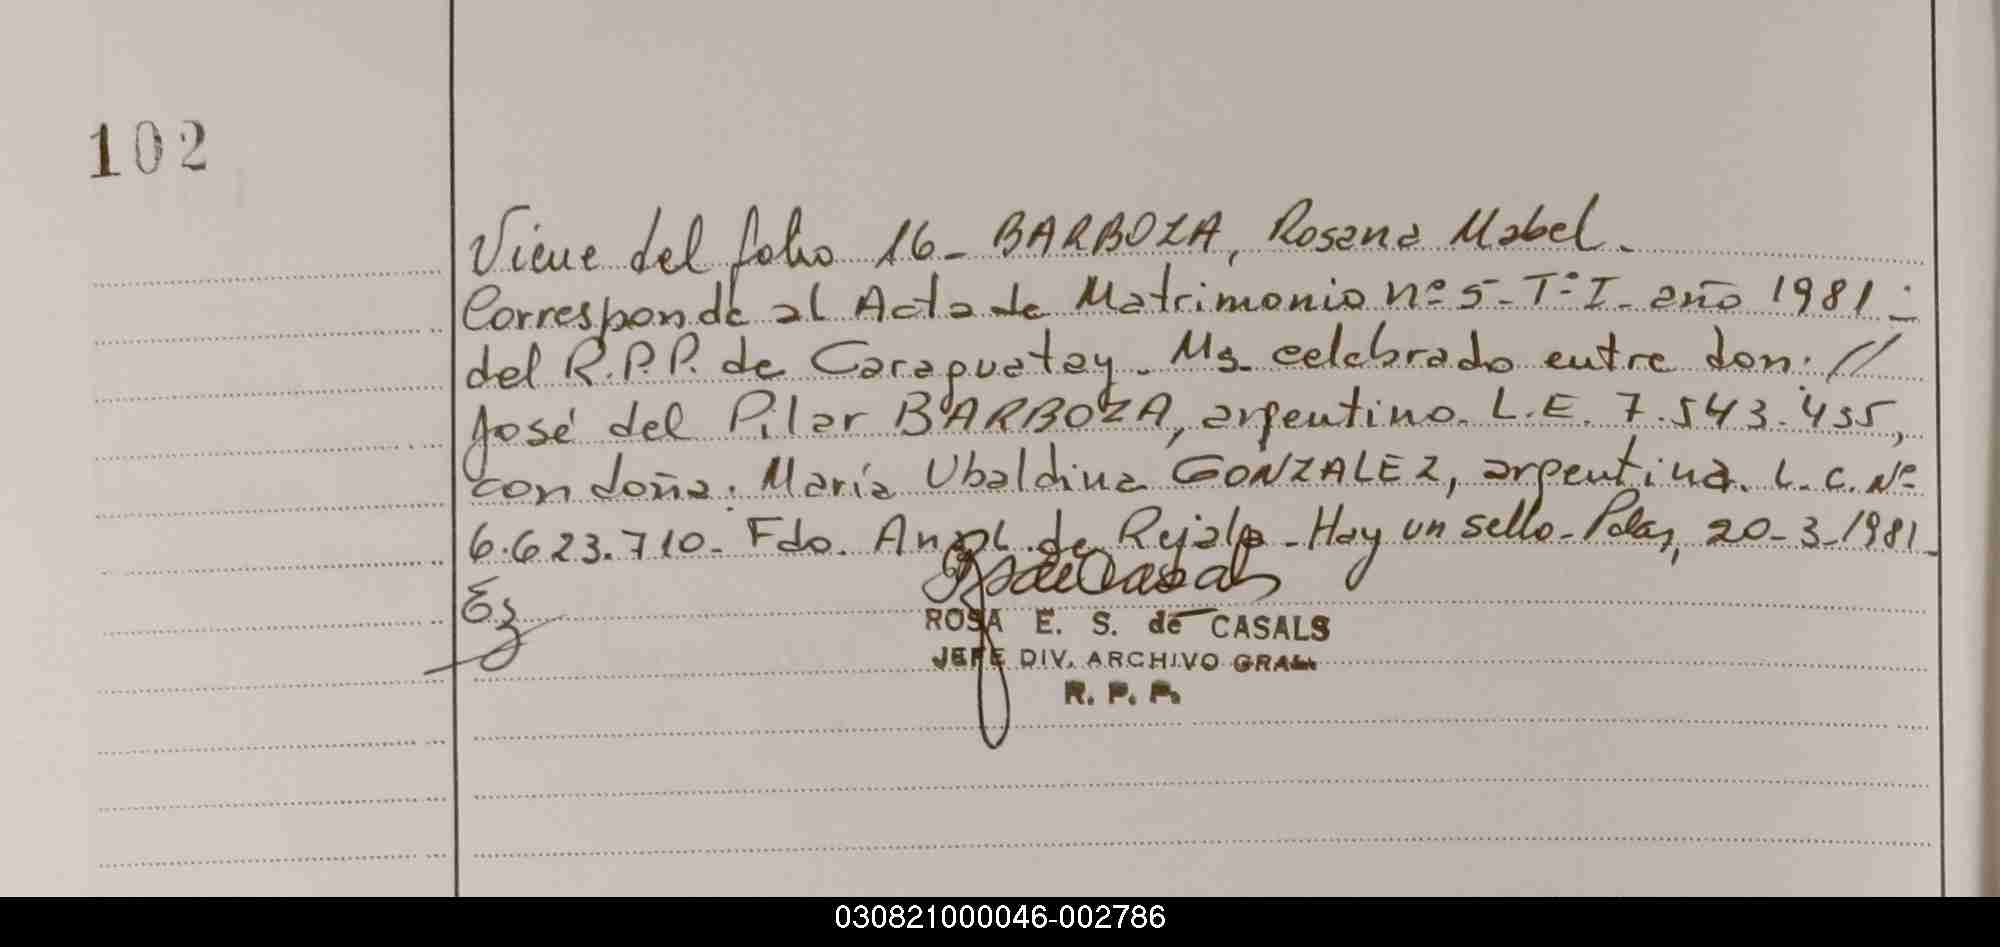 102
Viene del folio 16- BARBOZA, Rosana Mabel.
Corresponde al Acta de Matrimonio nº 5- Tº I- año 1981-
del R.P.P. de Caraguatay- Ms. celebrado entre don: //
José del Pilar BARBOZA, argentino. L.E. 7.543.435,
con doña: María Ubaldina GONZALEZ, argentina. L.C. Nº
6.623.710- Fdo. Ang L. de Rejala- Hay un sello- Pdas, 20-3-1981-
ROSA E. S. de CASALS
JEFE DIV. ARCHIVO GRAL
R. P. P.
030821000046-002786